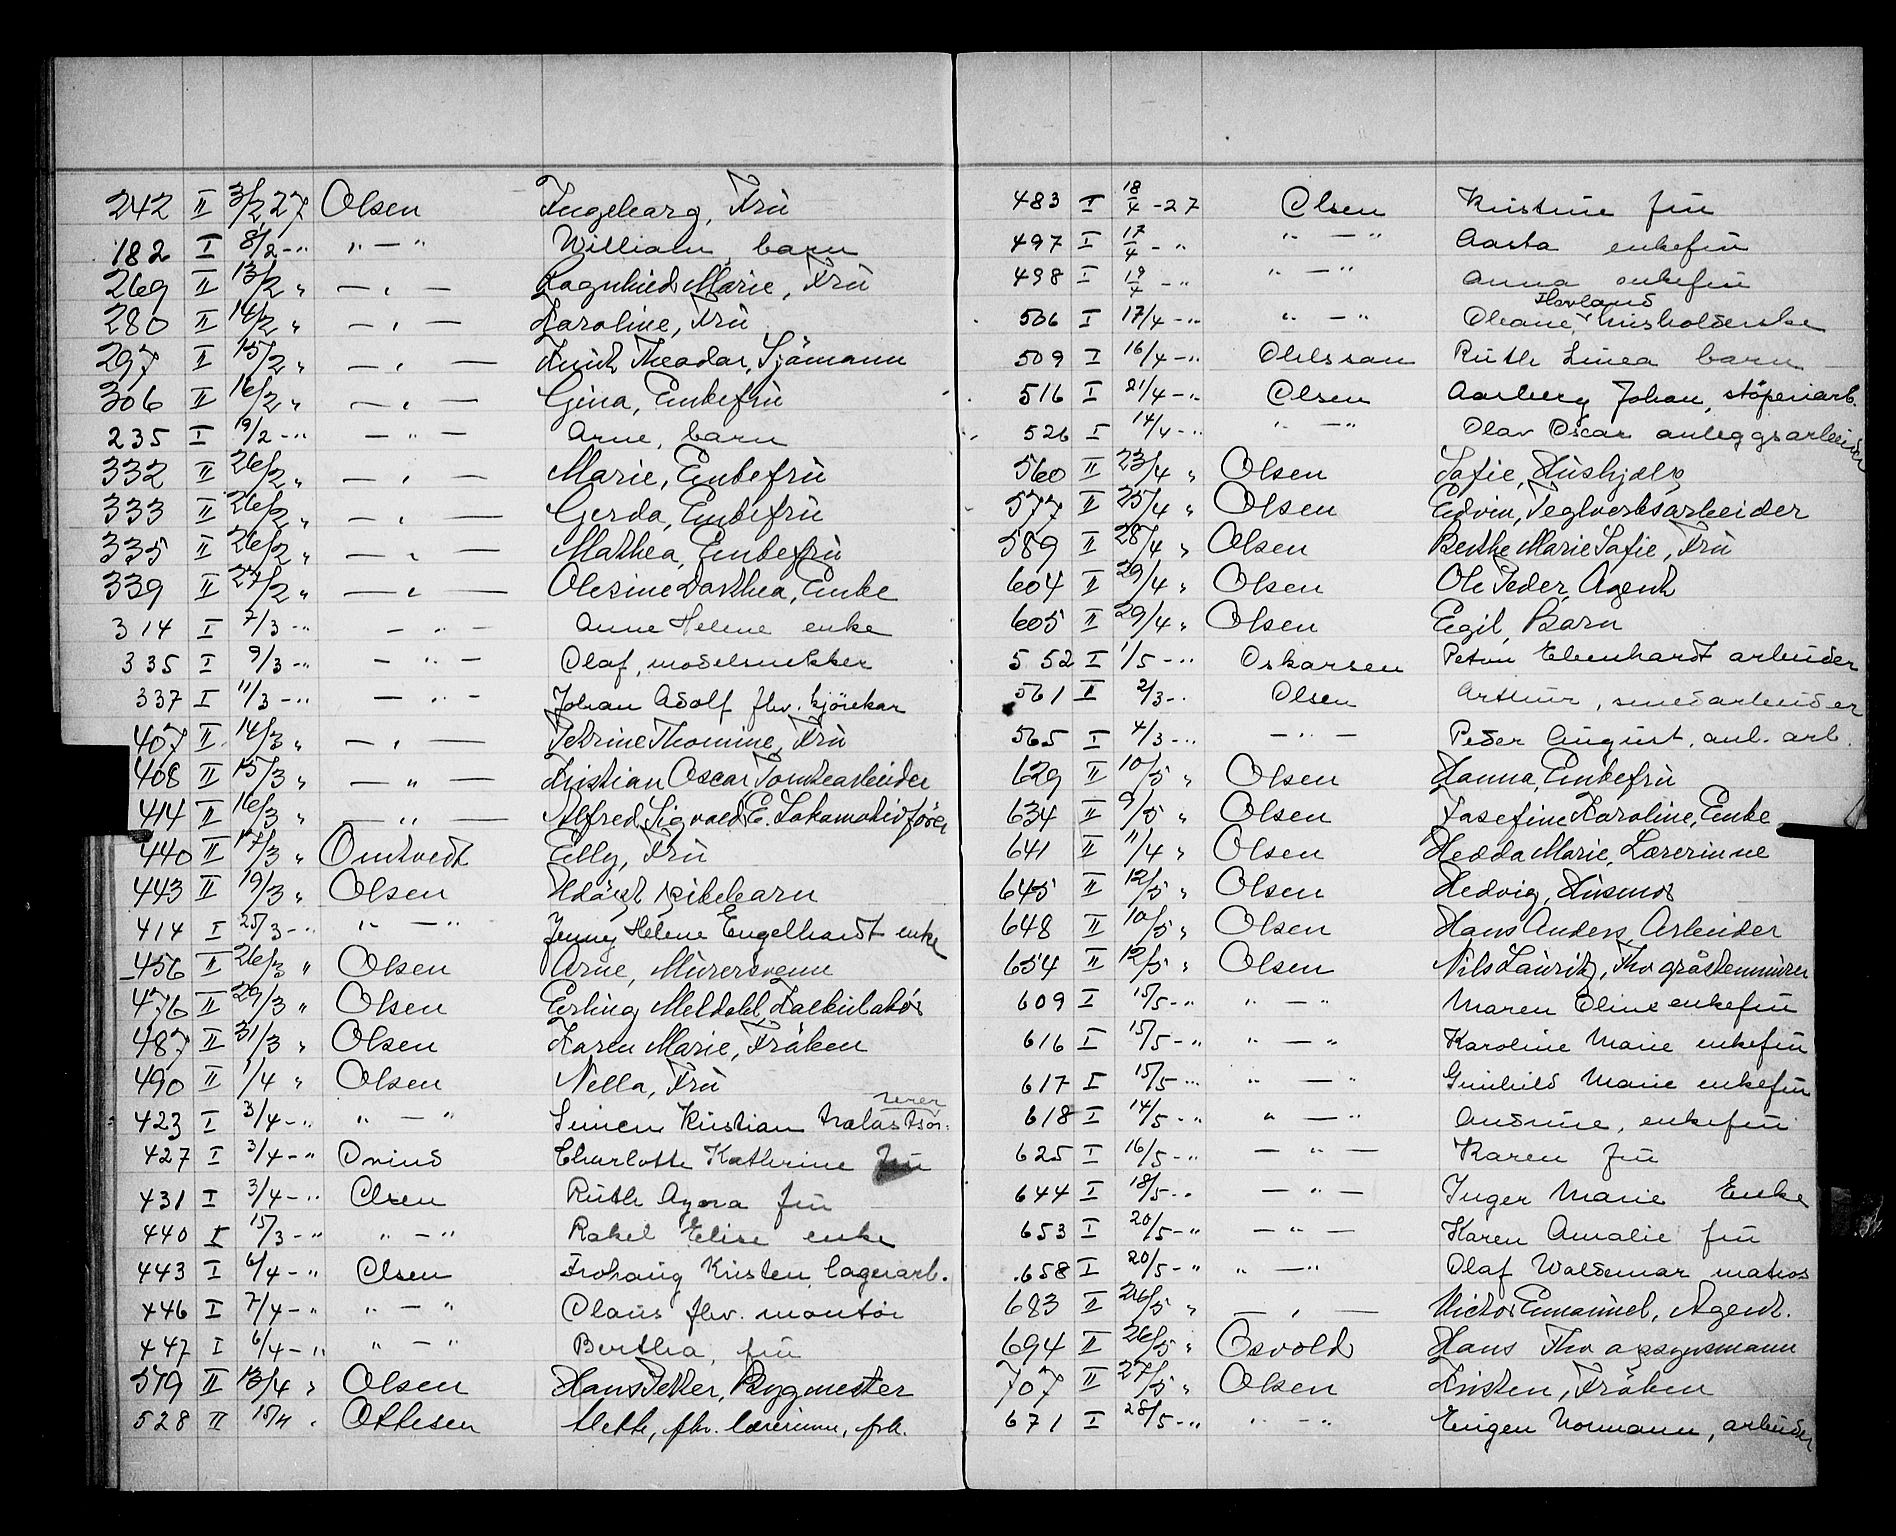 242 II 3/2 27 Olsen Ingeborg, Frü
182 I 8/2 -„ „ — „ William, barn
269 II 13/2 „ — „ — Ragnhild Marie, Frü
280 II 14/2 „ — „ — Karoline, Frü
297 II 15/2 „ — „ — Theodor, Sjömann
306 II 16/2 „ — „ — Gina, Enkefrü
235 I 19/2 -„ — „ — Arne, barn
332 II 26/2 „ — „ — Marie, Enkefrü
333 II 26/2 „ — „ — Gerda, Enkefrü
335 II 26/2 „ — „ — Mathea, Enkefrü
339 II 27/2 „ — „ — Olesine Dorthea, Enke
314 I 7/3 -„ — „ — Anne Helene enke
335 I 9/3 -„ — „ — Olaf, modelsnekker
337 I 11/3 -„ — „ — Johan Adolf fhv. kjörekar
407 II 14/3 „ — „ — Petrine Thomine, Frü
408 II 15/3 „ — „ — Kristian Oscar Tomtearbeider
414 II 16/3 „ — „ — Alfred Sigvald E. Lokomotivförer
440 II 17/3 „ Omtvedt Elly, Frü
443 II 19/3 „ Olsen Udöpt pikebarn
414 I 25/3 -„ „ — „ Jenny Helene Engelhardt enke
456 II 26/3 „ Olsen Arne, Mürersvenn
476 II 29/3 „ Olsen Erling Meldahl, Kalkülatör
487 II 31/3 „ Olsen Karen Marie, Fröken
490 II 1/4 „ Olsen Nella, Frü
423 I 3/4 -„ „ — „ Simen Kristian
427 I 3/4 -„ Charlotte Kathrine frü
431 I 3/4 -„ Olsen Rüth Agora frü
440 I 15/3 -„ „ — „ Rakel Elise enke
443 I 6/4 -„ Olsen Frohaüg Kristen, lagerarb.
446 I 7/4 -„ „ — „ Claüs fhv. montör
447 I 6/4 -„ „ — „ Bertha, frü
519 II 13/4 „ Olsen Hans Petter, Bygmester
528 II 15/4 „ Ottesen Mette, fhv. lærerinne, frk.
483 I 18/4 -27 Olsen Kristine frü
497 I 17/4 -„ „ — „ Aasta enkefrü
498 I 19/4 -„ „ — „ Anna enkefrü
506 I 17/4 -„ „ — „ Oleane, Hovland hüsholderske
509 I 16/4 -„ Ohlsson Rüth Linea barn
516 I 21/4 -„ Olsen Aarberg Johan, stöperiarb.
526 I 14/4 -„ „ — „ Olav Oscar anleggsarbeider
560 II 23/4 „ Olsen Sofie, Hüshjelp
577 II 25/4 „ Olsen Edvin, Teglverksarbeider
589 II 28/4 „ Olsen Berthe Marie Sofie, Frü
604 II 29/4 „ Olsen Ole Peder, Agent
605 II 29/4 „ Olsen Egil, Barn
552 I 1/5 -„ Oskarsen Petrin Ehenhardt arbeider
561 II 2/3 -„ Olsen Arthur, smedarbeider
565 I 4/3 -„ — „ — Peder Aügüst, anl. arb.
629 II 10/5 „ Olsen Hanna, Enkefrü
634 II 9/5 „ Olsen Josefine Karoline, Enke
641 II 11/4 „ Olsen Hedda Marie, Lærerinne
645 II 12/5 „ Olsen Hedvig, Hüsmor
648 II 10/5 „ Olsen Hans Anders, Arbeider
654 II 12/5 „ Olsen Nils Laüritz, Fhv gråstenmürer
609 I 15/5 -„ „ — „ Maren Oline enkefrü
616 I 15/5 -„ „ — „ Karoline Marie enkefrü
617 I 15/5 -„ „ — „ Günhild Marie enkefrü
618 I 14/5 -„ „ — „ Andrine, enkefrü
625 I 16/5 -„ — „ — Karen frü
644 I 18/5 -„ — „ — Inger Marie Enke
653 I 20/5 -„ — „ — Karen Amalie frü
658 I 20/5 -„ „ — „ Olaf Waldemar matros
683 II 24/5 „ — „ — Victor Emanüel, Agent.
694 II 26/5 „ Osvold Hans Fhv opsynsmann
707 II 27/5 „ Olsen Kristen, Fröken
671 I 28/5 -„ „ — „ Eügen Normann, arbeider